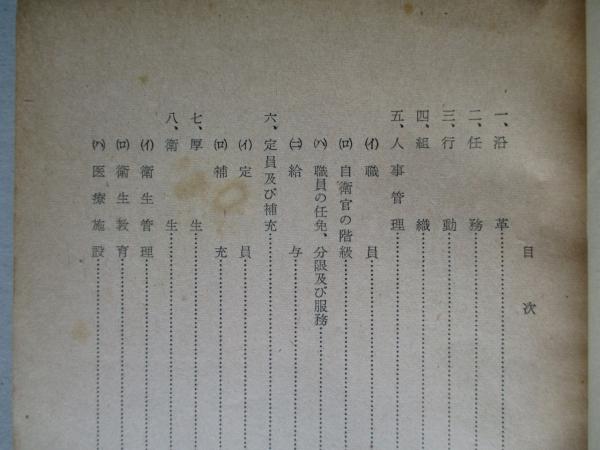 目次
一、沿革
二、任務
三、行動
四、組織
五、人事管理
(イ)職員
(ロ)自衛官の階級
(ハ)職員の任免、分限及び服務
(ニ)給与
六、定員及び補充
(イ)定員
(ロ)補充
七、厚生
八、衛生
(イ)衛生管理
(ロ)衛生教育
(ハ)医療施設